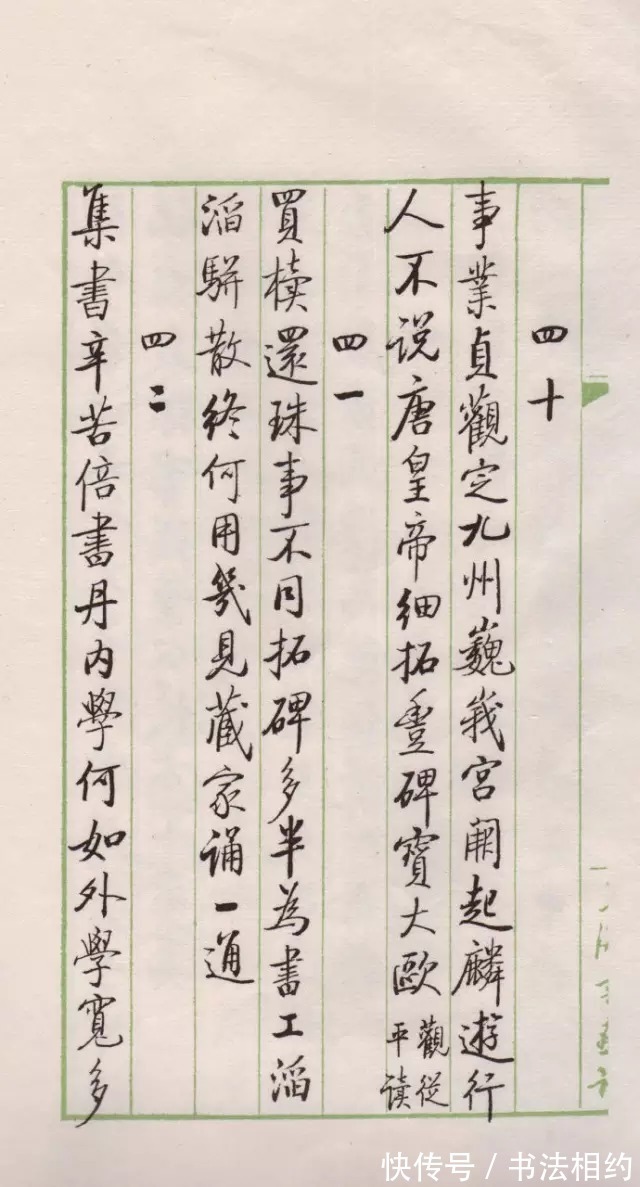 四十
事業貞觀定九州巍峩宮闕起麟遊行
人不说唐皇帝细拓豊碑寶大歐觀從
平读
四一
買櫝還珠事不同拓碑多半為書工滔
滔駢散終何用幾見藏家誦一通
四二
集書辛苦倍書丹内學何如外學寬多
快传号/书法相约